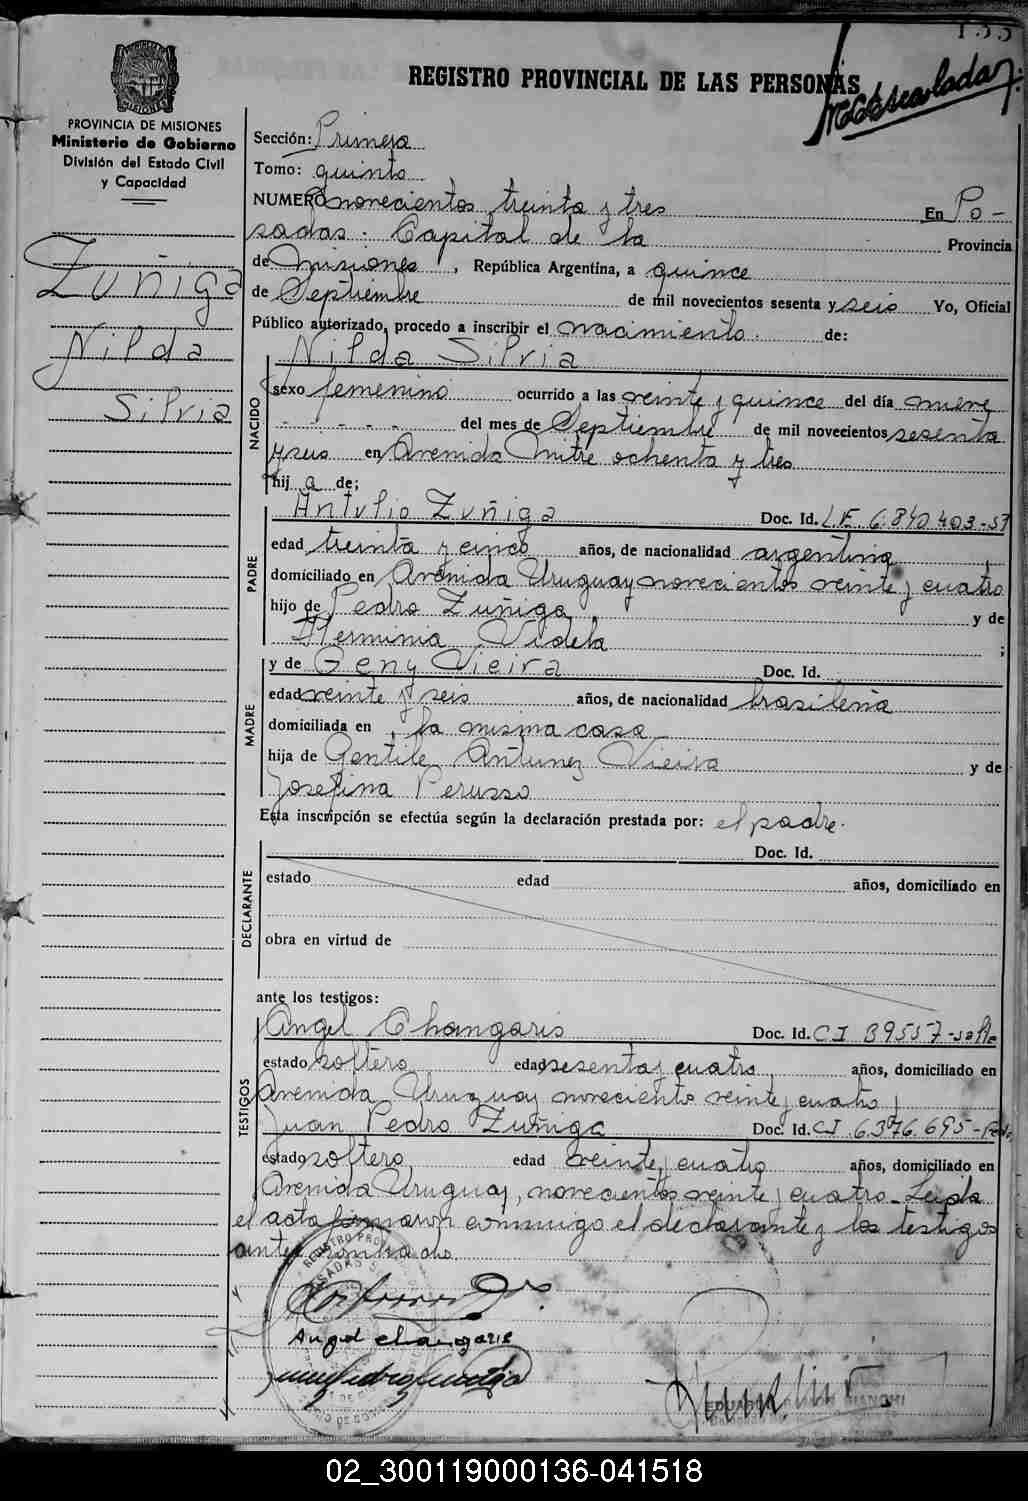 133
REGISTRO PROVINCIAL DE LAS PERSONAS
PROVINCIA DE MISIONES
Ministerio de Gobierno
División del Estado Civil
y Capacidad
Zuñiga
Nilda
Silvia
Sección: Primera
Tomo: quinto
NUMERO novecientos treinta y tres En Po-
sadas. Capital de la Provincia
de Misiones, República Argentina, a quince
de Septiembre de mil novecientos sesenta y seis Yo, Oficial
Público autorizado, procedo a inscribir el nacimiento. de:
NACIDO
Nilda Silvia
sexo femenino ocurrido a las veinte y quince del día nueve
- - - - - del mes de Septiembre de mil novecientos sesenta
y seis en Avenida Mitre ochenta y tres
hij a de;
PADRE
Antulio Zuñiga Doc. Id. L.E. 6.840.403-
edad treinta y cinco años, de nacionalidad argentina
domiciliado en Avenida Uruguay novecientos veinte y cuatro
hijo de Pedro Zuñiga y de
Herminia Videla ;
MADRE
y de Geny Vieira Doc. Id.
edad veinte y seis años, de nacionalidad brasileña
domiciliada en la misma casa
hija de Gentile Antunez Vieira y de
Josefina Perusso
Esta inscripción se efectúa según la declaración prestada por: el padre.
DECLARANTE
Doc. Id.
estado edad años, domiciliado en
obra en virtud de
ante los testigos:
TESTIGOS
Angel Changaris Doc. Id. CI B9557-
estado soltero edad sesenta y cuatro, años, domiciliado en
Avenida Uruguay novecientos veinte y cuatro y
Juan Pedro Zuñiga Doc. Id. CI 6.376.695-
estado soltero, edad veinte y cuatro años, domiciliado en
Avenida Uruguay, novecientos veinte y cuatro_ Leida
el acta firmaron conmigo el declarante y los testigos
antes
Angel changaris
02_300119000136-041518